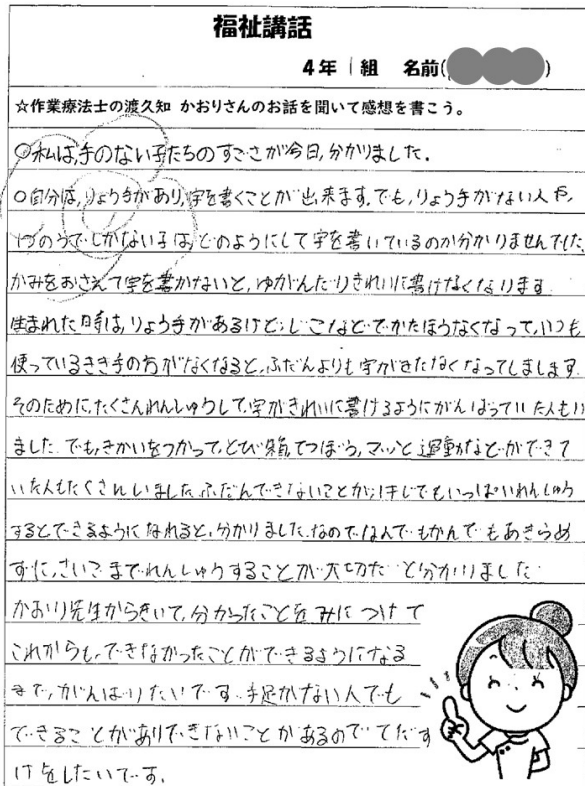 福祉講話
4年 1組 名前( )
☆作業療法士の渡久知 かおりさんのお話を聞いて感想を書こう。
○私は,手のない子たちのすごさが今日,分かりました.
○自分は,りょう手があり,字を書くことが出来ます.でも,りょう手がない人や,
しかない子は,どのようにして字を書いているのか分かりませんでした.
かみをおさえて字を書かないと,ゆがんだりきれいに書けなくなります
生まれた時は,りょう手があるけど,じこなどでかたほうなくなって,いつも
使っているきき手の方がなくなると,ふだんよりも字がきたなくなってしまします.
そのために,たくさんれんしゅうして,字がきれいに書けるようにがんばっていた人もい
ました.でも,きかいをつかって,とび箱,てつぼう,マットと運動などができて
いた人もたくさんいました.ふだんできないことが,はじでもいっぱいれんしゅう
するとできるようになれると,分かりました.なのでなんでもかんでもあきらめ
ずに,さいごまでれんしゅうすることが大切だと分かりました
かおり先生からきいて,分かったことをみにつけて
これからも,できなかったことができるようになる
まで,がんばりたいです.手足がない人でも
できることがありできないことがあるのでてだす
けをしたいです.